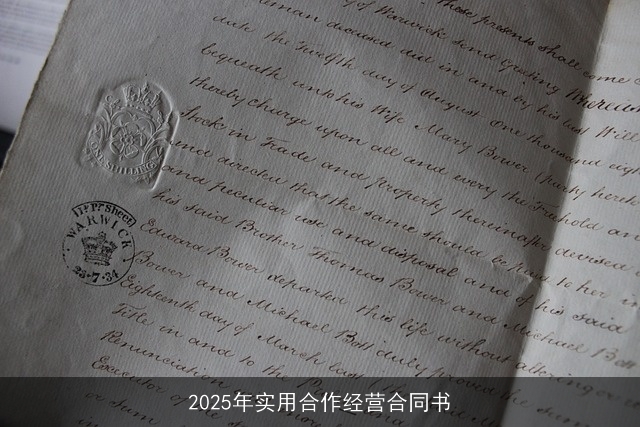 of Warwick send Greeting Whereas
deceased did in and by his last Will
date the Twelfth day of August One thousand eigh
bequeath unto his Wife Mary Bower (party here
thereby charge upon all and every the Freehold an
Stock in Trade and property thereinafter devised
and directed that the same should be paid to her
and peculiar use and disposal and of his said
his said Brother Thomas Bower and Michael Bott
Edward Bower departed this life without altering or
Bower and Michael Bott duly proved the same
Eighteenth day of March last
Title in and to the
Renunciation
Executor of the
or sum
ONE SHILLING
11 Pr Sheet
WARWICK
23·7·34
2025年实用合作经营合同书